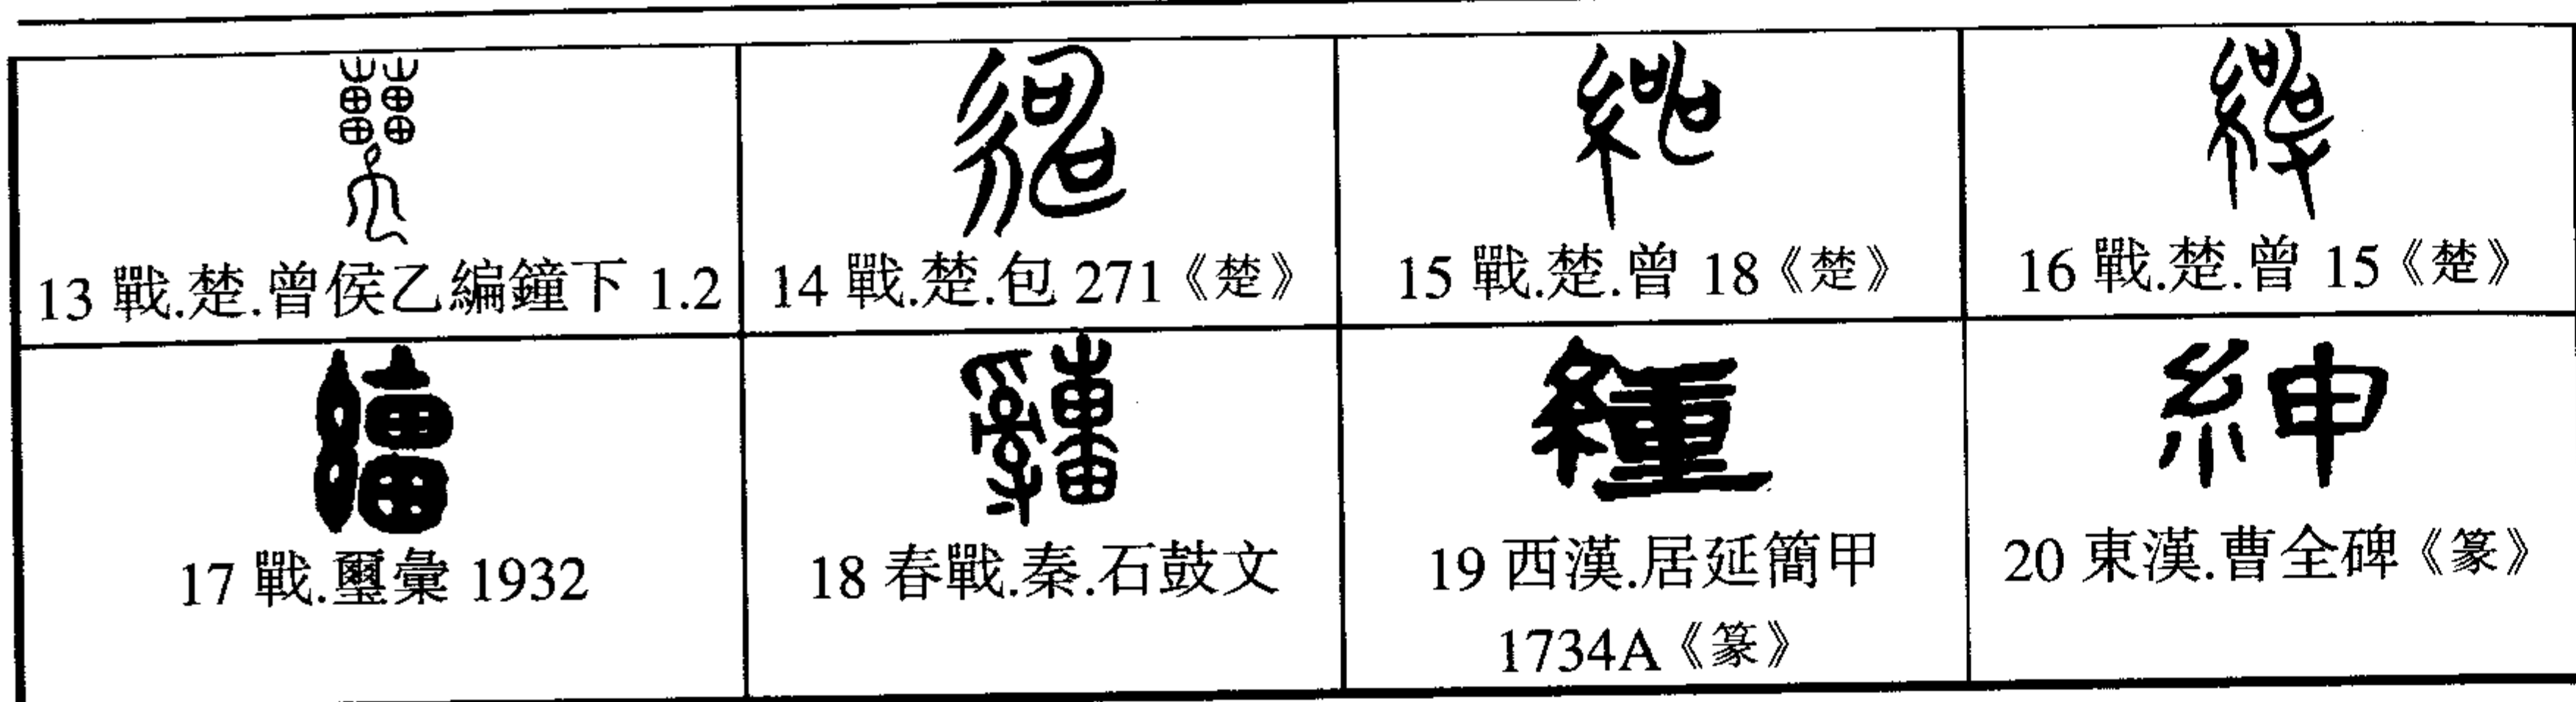 13 戰.楚.曾侯乙編鐘下 1.2
14 戰.楚.包 271《楚》
15 戰.楚.曾 18《楚》
16 戰.楚.曾 15《楚》
17 戰.璽彙 1932
18 春戰.秦.石鼓文
19 西漢.居延簡甲
1734A《篆》
紳
20 東漢.曹全碑《篆》